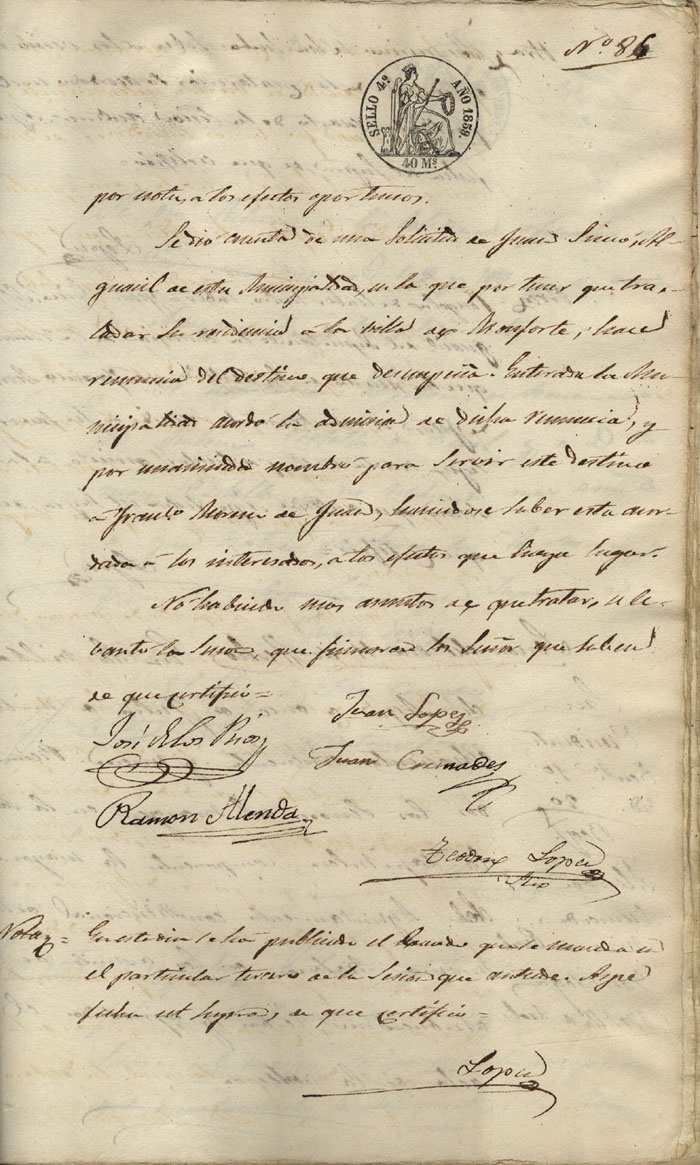 Nº 86
SELLO 4º AÑO 1859.
40 Ms.
por nota, a los efectos oportunos.
Se dió cuenta de una Solicitud de Juan Simó, Al-
guacil de esta Municipalidad, en la que por tener que tras-
ladar su residencia á la villa de Monforte, hace
renuncia del destino que desempeña. Enterada la Mu-
nicipalidad acordó la admision de dicha renuncia, y
por unanimidad nombró para servir este destino
a Franco. Moreno de Juan, haciendose saber esta acor-
dada á los interesados, a los efectos que haya lugar.
No habiendo mas asuntos de que tratar, se le-
vantó la Sesion, que firmaron los Señores que saben
de que certifico =
José de los Rios
Juan Lopez
Juan Cremades
Ramon Alenda
Teodoro Lopez
Srio
Nota = En este dia se ha publicado el Bando que se manda en
el particular tercero de la Sesion que antecede. Aspe
fecha ut supra, de que certifico =
Lopez